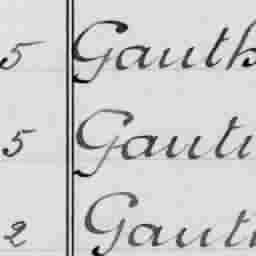 5 Gauth
5 Gauti
2 Gauti